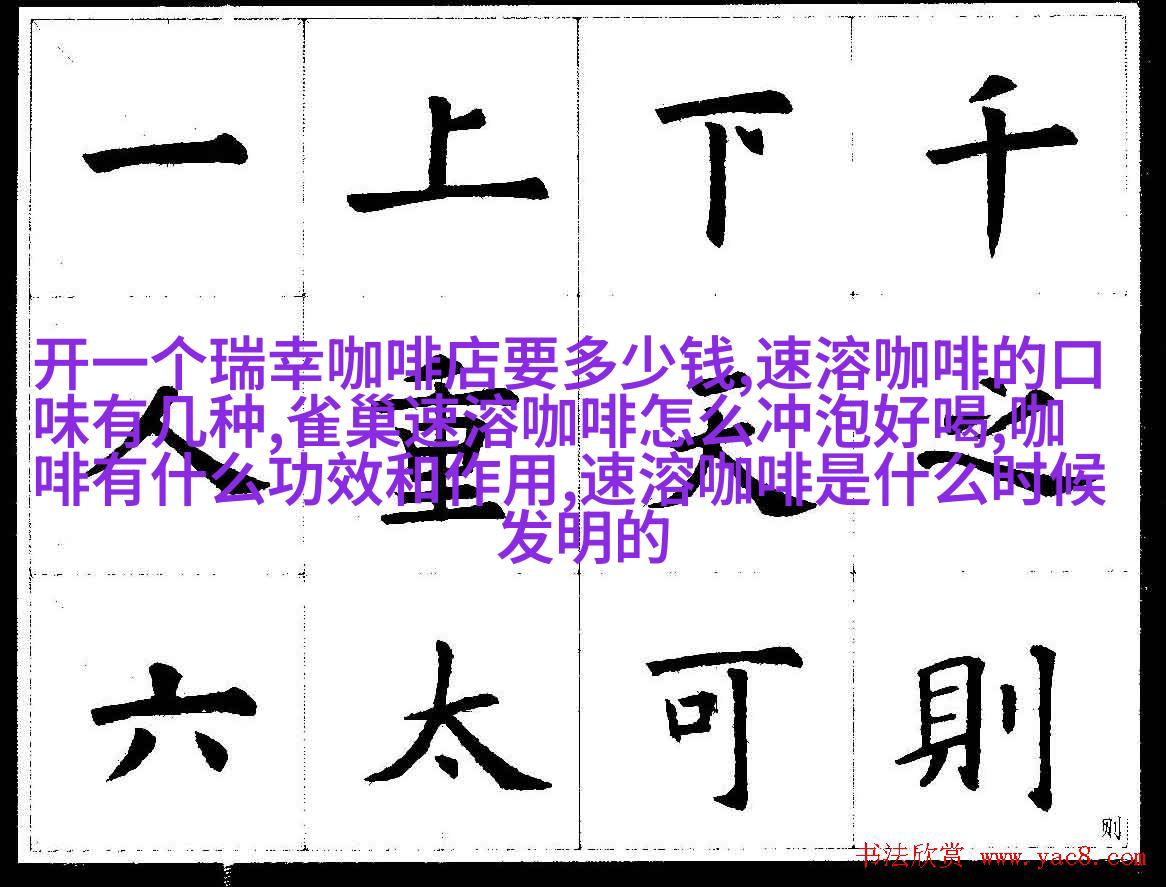 一 上 下 千
开一个瑞幸咖啡店要多少钱,速溶咖啡的口
味有几种,雀巢速溶咖啡怎么冲泡好喝,咖
啡有什么功效和作用,速溶咖啡是什么时候
发明的
人 重 天 之
六 太 可 則
则
书法欣赏 www.yac8.com